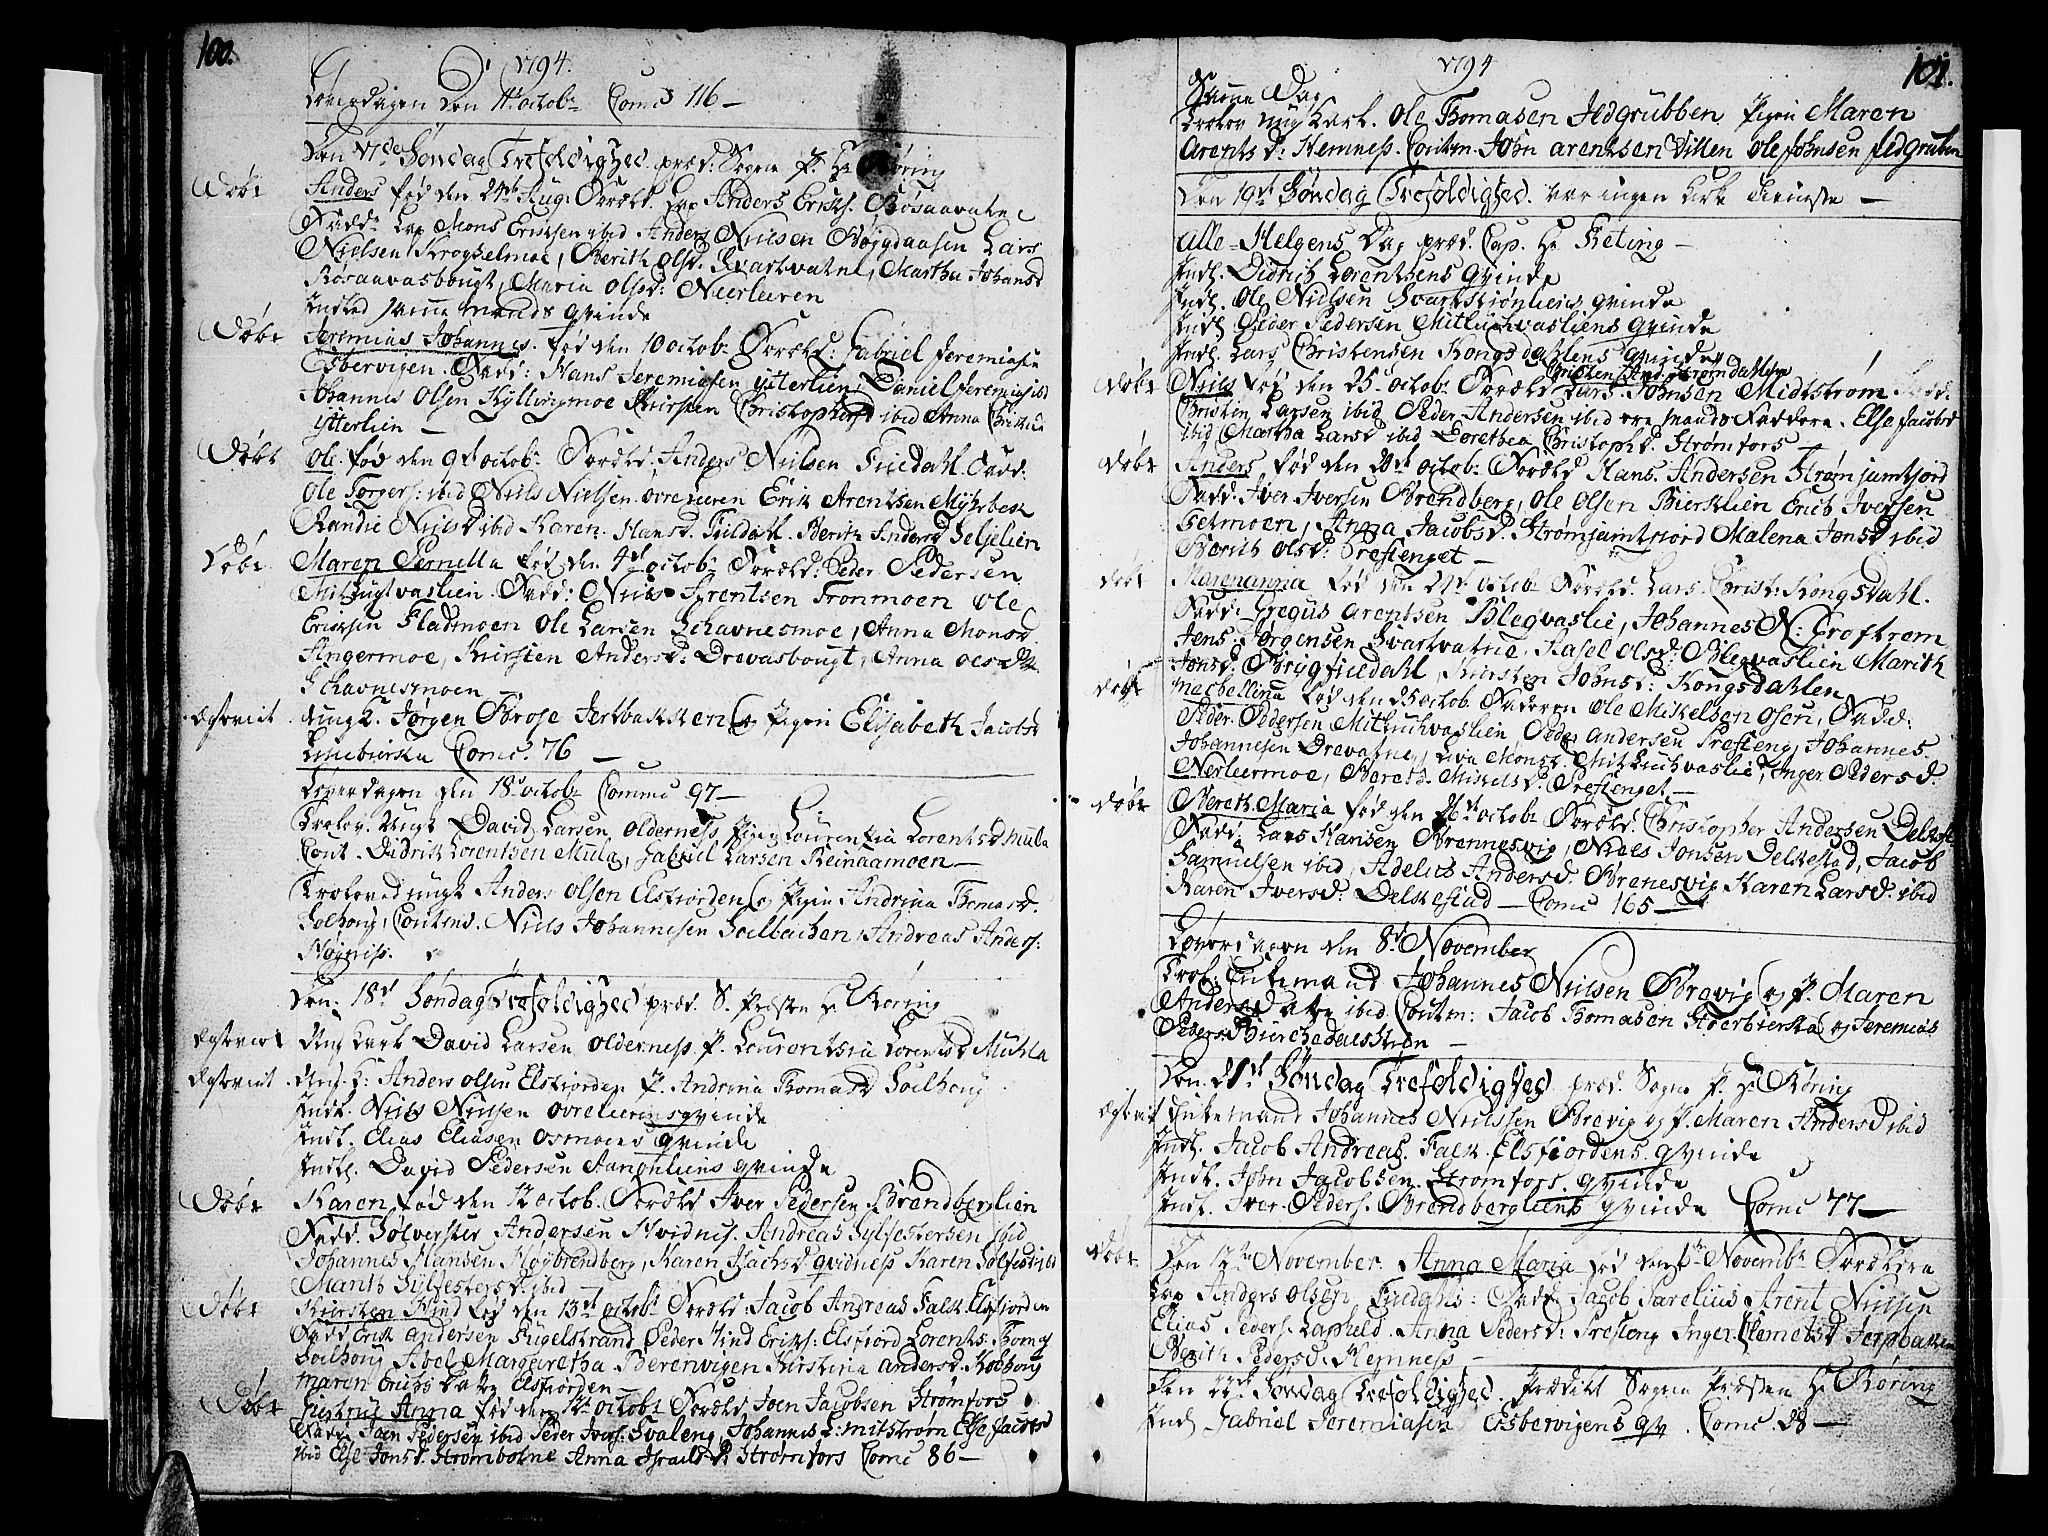 100.
1794.
Løverdagen den 11te octobr Comc 116 —
Den 17de Søndag Trefoldighed præd: Sogne P. Hr Røring
Døbt Anders fød den 24de Aug: Foræld. Lap Anders Ericks. Røsaavatne
Fadd. Lap Mons Ericksen ibid Anders Nielsen Bøygdaasen Lars
Nielsen Krogselmoe, Berith olsd. Svartvatne, Martha Johansd
Røsaavasbougt, Maria olsd: Neerleeren
Indled samme mands qvinde
Døbt Jeremias Johannes. fød den 10 octobr Foræld: Gabriel Jeremiasen
Esbervigen. Fadd: Hans Jeremiasen ytterlien, Daniel Jeremiasen
Johannes Olsen Kyllingmoe Kirsten Christophersd ibid Anna
ytterlien —
Døbt Ole. fød den 9de octobr Foræld. Anders Nielsen Fieldahl. Fadd.
Ole Torgers: ibid Niels Nielsen øvreleeren Erik Arentsen Myhrbek
Randie Nielsd ibid Karen Hansd. Fieldahl. Berith Andersd Seljelien
Døbt Maren Pernella fød den 4de octobr Foræld: Peder Pedersen
Mitbugtvaslien. Fadd: Niels Lorentsen Tronmoen Ole
Ericksen Fladmoen Ole Larsen Schavnesmoe, Anna Monsd
Angermoe, Kirsten Andersd: Drevasbougt, Anna olsd
Schavnesmoen —
Egteviet ungk. Jørgen Brose Jertbakken og Pigen Elisabeth Jacobsd
Comc. 76 —
Løverdagen den 18de octobr Commc 97 —
Trolov. Ungk David Larsen olderness Pigen Lourentsia Lorentsd mula
Cont. Didrik Lorentsen Mula, Gabriel Larsen Reinaamoen —
Troloved ungk Anders olsen Elsfiorden og Pigen Andrina Thomasd.
Solhoug, Contend. Niels Johannesen Soelbachen, Andreas Anders:
Den 18de Søndag Trefoldighed præd. S. Præsten Hr Røring
Egteviet Ung karl David Larsen olderness P. Lourentsia Lorentsd Muhla
Egteviet Ung. K: Anders olsen Elsfiorden P. Andrina Thomasd Solhoug
Indl. Niels Nielsen øvreleerens qvinde
Indl. Elias Eliasen osmoens qvinde
Indl. David Pedersen qvinde
Døbt Karen fød den 12 octob. Foræld Iver Pedersen Brendberglien
Fadd. Sølvester Andersen Hvidnes. Andreas Sylfestersen ibid
Johannes Hansen Høybrendberg, Karen Isachsd qvidness Karen Sølfestersd
Marith Sylfestersd. ibid —
Døbt Kirsten Hind fød den 13de octobr Foræld. Jacob Andreas Falk Elsfiorden
Fadd Erik Andersen Fugelstrand Peder Hind Eriks: Elsfiord Lorents Thomas
Solhoug Abel Margaretha Berenvigen Kirstina andersd. Solhoug
maren Elsfiorden —
Døbt Anna fød den 12 octobr Foræld Joen Jacobsen Strømfors
Fadd. Joen Pedersen ibid Peder Ivers. Svaleng, Johannes mitstrøm Else Jacobsd
ibid Else Jonsd. Strømbotne Anna Israelsd Strømfors Comc 86 —
1794
101.
Samme Dag
Trolov ung karl. Ole Thomasen Fedgrubben Pigen Maren
Arentsd: Hemness. Contm. John arentsen Villen ole Johnsen fedgruben
Den 19de Søndag Trefoldighed. var ingen kirke tieneste —
Alle-Helgens Dag præd. Cap. Hr Beting —
Indl. Didrich Lorentsens qvinde
Indl. Ole Nielsen Svarttiønliens qvinde
Indl Peder Pedersen Mitbuchvasliens qvinde
Indl. Lars Christensen Kongsdahlens qvinde
Christen And: Strømdahlen
Døbt Niels fød den 25. octobr Foræld Lars Johnsen Midtstrøm Fadd.
Christen Larsen ibid Peder Andersen ibid ere mands Faddere. Else Jacobsd
ibid Martha Larsd ibid Dorethea Christophd. Strømfors —
Døbt Anders fød den 20de octobr Foræld Hans Andersen Strømsamfiord
Fadd. Iver Iversen Brendberg, Ole Olsen Bierklien Erich Iversen
Fetmoen, Anna Jacobsd. Strømsamfiord Malena Jonsd ibid
Berith olsd: Præstenget —
Døbt Marenanna fød den 24de octobr Foræld. Lars Christ: Kongsdahl.
Fadd: Gregus arentsen Blegvaslie, Johannes N: Croftrem
Jens Jørgensen Svartvatne, Kasel olsd: Blegvaslien Marith
Jonsd. Brygfieldahl, Kirsten Johnsd: Kongsdahlen
Døbt Mechellina fød den 25 octob. Faderen Ole Mikelsen osen, Fadd:
Peder Pedersen Mitbuchvaslien Peder andersen Presteng, Johannes
Johannesen Drevatne, Liva Monsd. Mitbuchvaslie, Inger Pedersd.
Nerleermoe, Beret Mikelsd. Prestenget —
Døbt Bereth Maria fød den 26de octobr Foræld. Christopher Andersen Delkestad
Fadd: Lars Hansen Brennesvig, Niels Jonsen Delkestad, Jacob
Samuelsen ibid, Adelus Andersd. Brenesvig Karen Larsd. ibid
Karen Iversd: Delkestad — Comc 165 —
Løverdagen den 8de November
Trol. Enkemand Johannes Nielsen Brevig og P. Maren
Andersdatter ibid Contm: Jacob Thomasen Storbierka og Jeremias
Peders. Bierchedalstrøn —
Den 21de Søndag Trefoldighed præd. Sogne P. Hr Røring
Egteviet Enkemand Johannes Nielssen Brevig og P. Maren Andersd ibid
Indl. Jacob Andreas. Falk Elsfiordens qvinde
Indl. John Jacobsen Strømfors. qvinde
Indl. Iver Peders. Brendbergliens qvinde Comc 77 —
Døbt Den 12te November. Anna Maria fød den Novembr Forældre
Lap Anders olsen Fieldahls: Fadd: Jacob Sarelius Arent Nielsen
Elias Peders. Lapheld. Anna Pedersd: Presteng Inger Clemetsd Jertbakken
Berith Pedersd: Hemness —
Den 22de Søndag Trefoldighed. Prædikt Sogne Præsten Hr Røring
Indl Gabriel Jeremiasen Esbervigens qv. Comc. 28 —